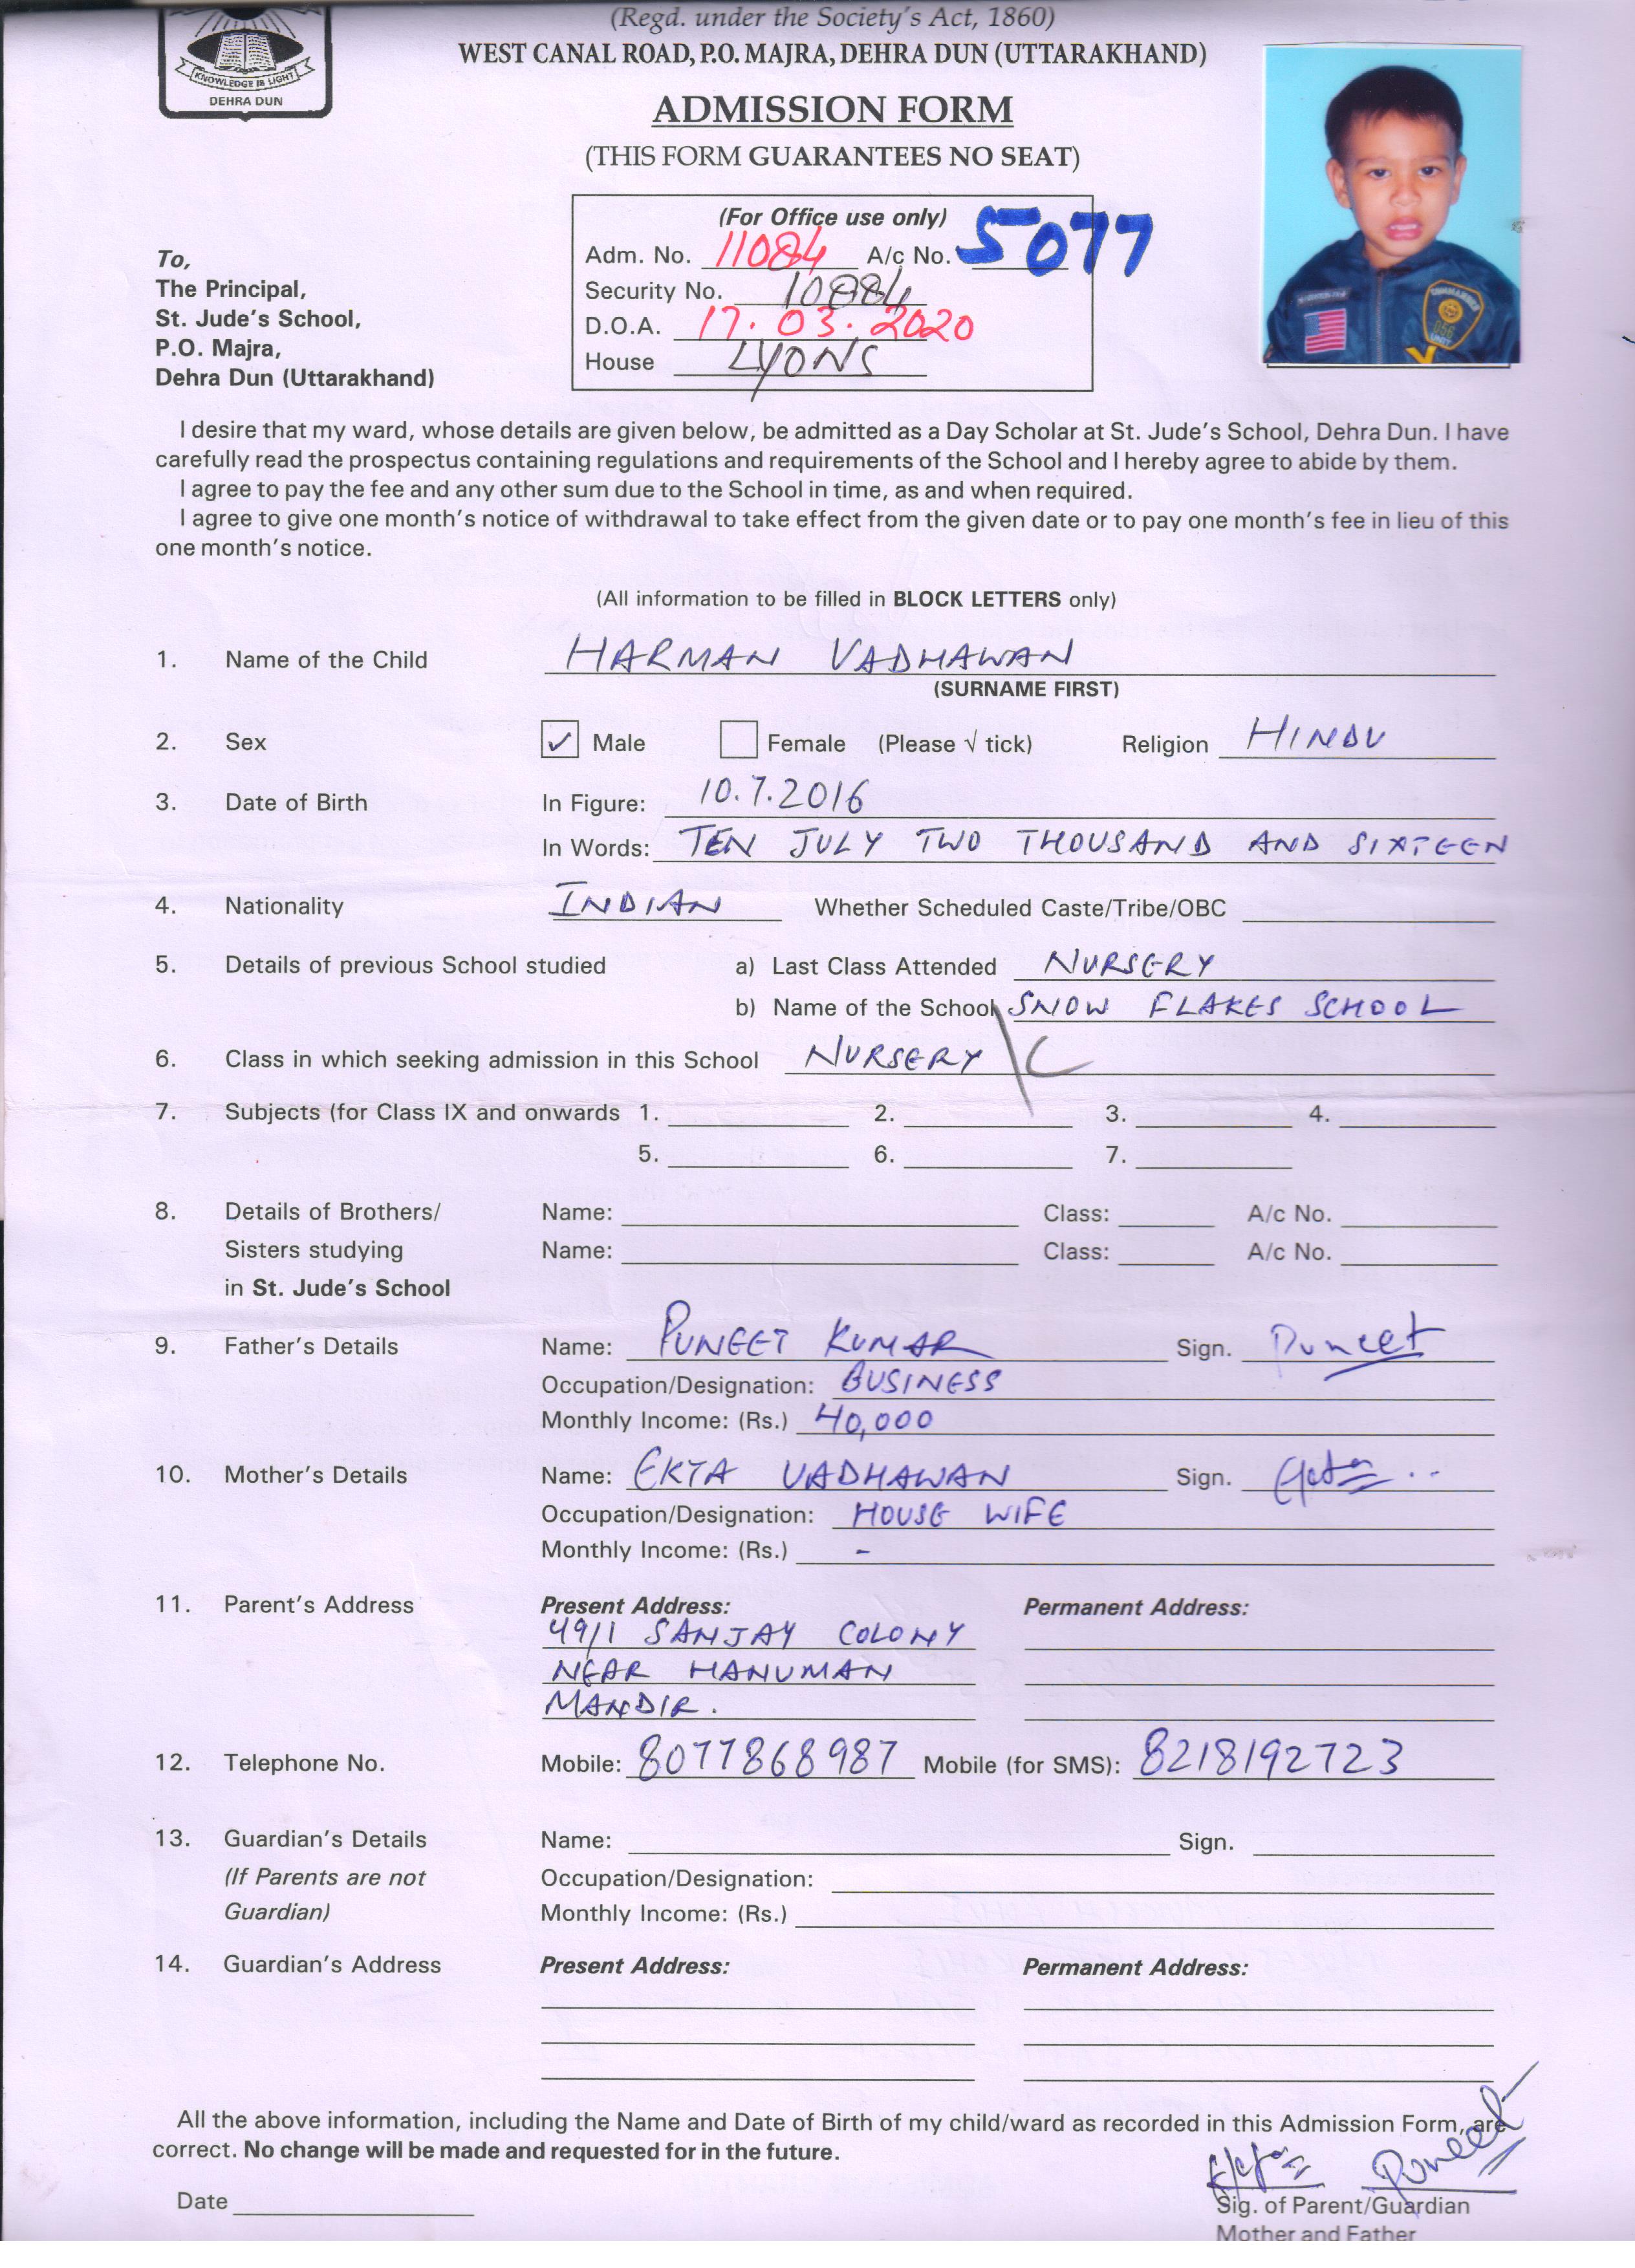 (Regd. under the Society's Act, 1860)
WEST CANAL ROAD, P.O. MAJRA, DEHRA DUN (UTTARAKHAND)
KNOWLEDGE IS LIGHT
DEHRA DUN
ADMISSION FORM
(THIS FORM GUARANTEES NO SEAT)
(For Office use only)
Adm. No. 11084 A/c No. 5077
Security No. 10884
D.O.A. 17.03.2020
House LYONS
To,
The Principal,
St. Jude's School,
P.O. Majra,
Dehra Dun (Uttarakhand)
COMMANDER
UNIT
I desire that my ward, whose details are given below, be admitted as a Day Scholar at St. Jude's School, Dehra Dun. I have
carefully read the prospectus containing regulations and requirements of the School and I hereby agree to abide by them.
I agree to pay the fee and any other sum due to the School in time, as and when required.
I agree to give one month's notice of withdrawal to take effect from the given date or to pay one month's fee in lieu of this
one month's notice.
(All information to be filled in BLOCK LETTERS only)
1. Name of the Child HARMAN VADHAWAN
(SURNAME FIRST)
2. Sex ✓ Male Female (Please √ tick) Religion HINDU
3. Date of Birth In Figure: 10.7.2016
In Words: TEN JULY TWO THOUSAND AND SIXTEEN
4. Nationality INDIAN Whether Scheduled Caste/Tribe/OBC
5. Details of previous School studied a) Last Class Attended NURSERY
b) Name of the School SNOW FLAKES SCHOOL
6. Class in which seeking admission in this School NURSERY \ C
7. Subjects (for Class IX and onwards 1. 2. 3. 4.
5. 6. 7.
8. Details of Brothers/ Name: Class: A/c No.
Sisters studying Name: Class: A/c No.
in St. Jude's School
9. Father's Details Name: PUNEET KUMAR Sign. Puneet
Occupation/Designation: BUSINESS
Monthly Income: (Rs.) 40,000
10. Mother's Details Name: EKTA VADHAWAN Sign.
Occupation/Designation: HOUSE WIFE
Monthly Income: (Rs.) -
11. Parent's Address Present Address: Permanent Address:
49/1 SANJAY COLONY
NEAR HANUMAN
MANDIR.
12. Telephone No. Mobile: 8077868987 Mobile (for SMS): 8218192723
13. Guardian's Details Name: Sign.
(If Parents are not Occupation/Designation:
Guardian) Monthly Income: (Rs.)
14. Guardian's Address Present Address: Permanent Address:
All the above information, including the Name and Date of Birth of my child/ward as recorded in this Admission Form, are
correct. No change will be made and requested for in the future.
Puneet
Date
Sig. of Parent/Guardian
Mother and Father